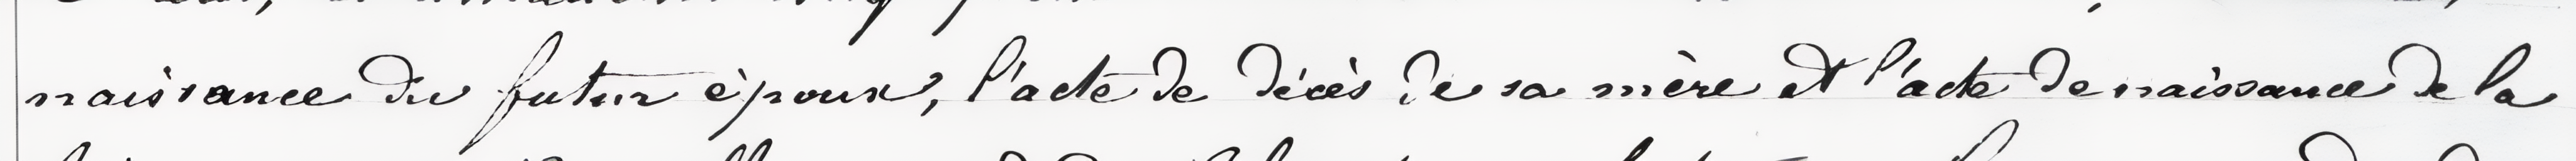 naissance du futur époux, l'acte de décès de sa mère et l'acte de naissance de la